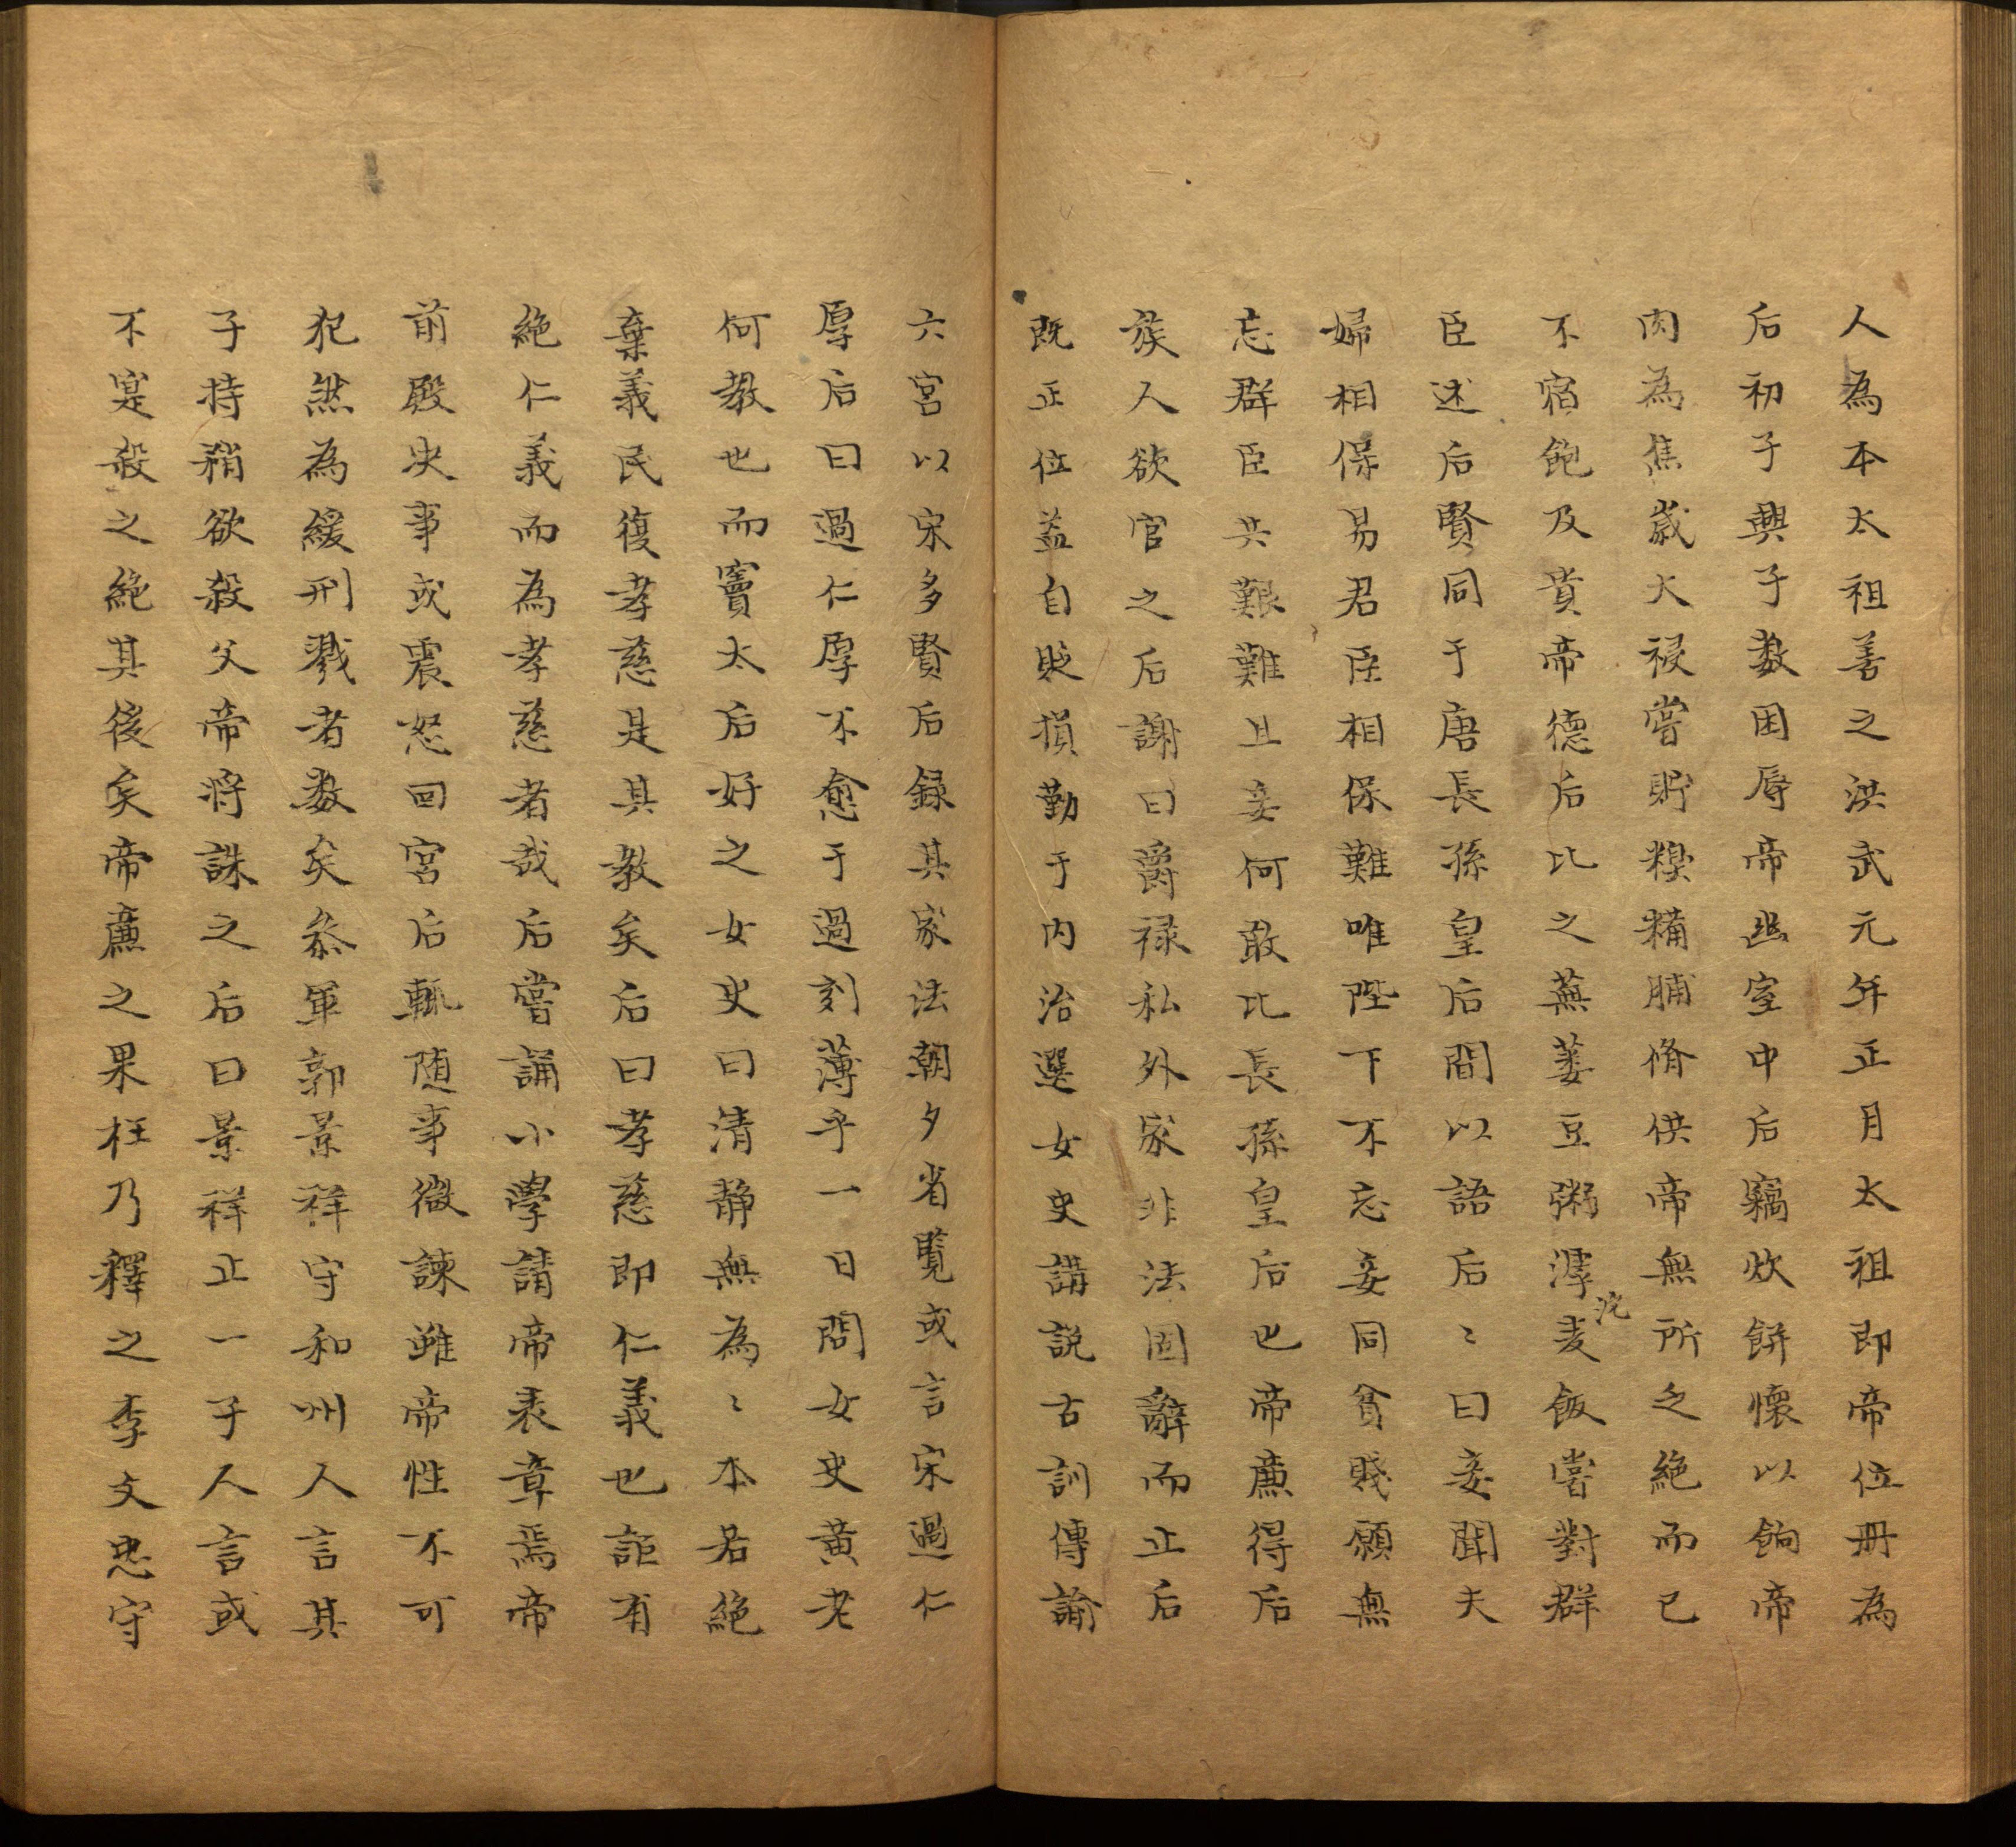 人為本太祖善之洪武元年正月太祖即帝位冊為
后初子興子数困辱帝幽室中后竊炊餅懷以餉帝
肉為焦歲大祲嘗貯糗糒脯脩供帝無所乏絕而已
不宿飽及貴帝德后比之蕪蔞豆粥滹沱麦飯嘗對群
臣述后賢同于唐長孫皇后間以語后〻曰妾聞夫
婦相保易君臣相保難唯陛下不忘妾同貧賤願無
忘群臣共艱難且妾何敢比長孫皇后也帝薦得后
族人欲官之后謝曰爵禄私外家非法固辭而止后
既正位益自貶損勤于内治選女史講説古訓傳諭
六宮以宋多賢后録其家法朝夕省覧或言宋過仁
厚后曰過仁厚不愈于過刻薄乎一日問女史黄老
何教也而竇太后好之女史曰清静無為〻本若絕
棄義民復孝慈是其教矣后曰孝慈即仁義也詎有
絶仁義而為孝慈者哉后嘗誦小學請帝表章焉帝
前殿决事或震怒回宮后輒随事微諫雖帝性不可
犯然為緩刑戮者数矣叅軍郭景祥守和州人言其
子持矟欲殺父帝将誅之后曰景祥止一子人言或
不寔殺之絶其後矣帝薦之果枉乃釋之李文忠守